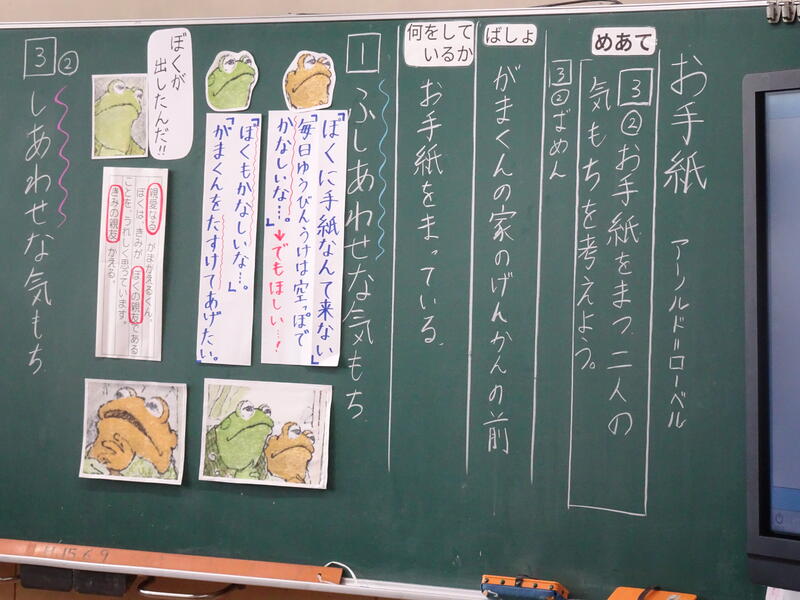 お手紙
アーノルド＝ローベル
めあて
3②お手紙をまつ、二人の
気もちを考えよう。
3②ばめん
ばしょ
がまくんの家のげんかんの前
何をして
いるか
お手紙をまっている。
1 ふしあわせな気もち
「ぼくに手紙なんて来ない」
「毎日ゆうびんうけは空っぽで
かなしいな…。」→でもほしい…！
「ぼくもかなしいな…。」
「がまくんをたすけてあげたい。」
ぼくが
出したんだ!!
親愛なる がまがえるくん。
ぼくは、きみが ぼくの親友である
ことを、うれしく思っています。
きみの親友 かえる。
3② しあわせな気もち